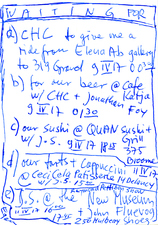 WAITING FOR
a) CHC to give me a
ride from Elena Ab gallery
to 349 Grand 9 IV 17 00
b) for our beer @ Cafe
w/ CHC + Jonathan Katja
9 IV 17 0130 Fox
c) our Sushi @ QUAN Sushi +
w/ J.S. 9 IV 17 18 Grill
375
Broome
d) our tarts + Cappuccini 11 IV 17
@ Ceci Cela Patisserie
w/ J.S. 15
e) J.S. @ the New Museum
11 IV 17 16
17 + John Fluevog
250 Mulberry Shoes